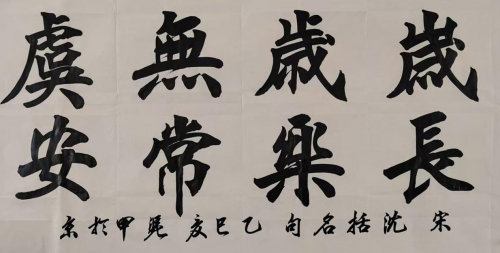 歲歳無虞
長樂常安
宋沈括名句乙巳夏甲於京